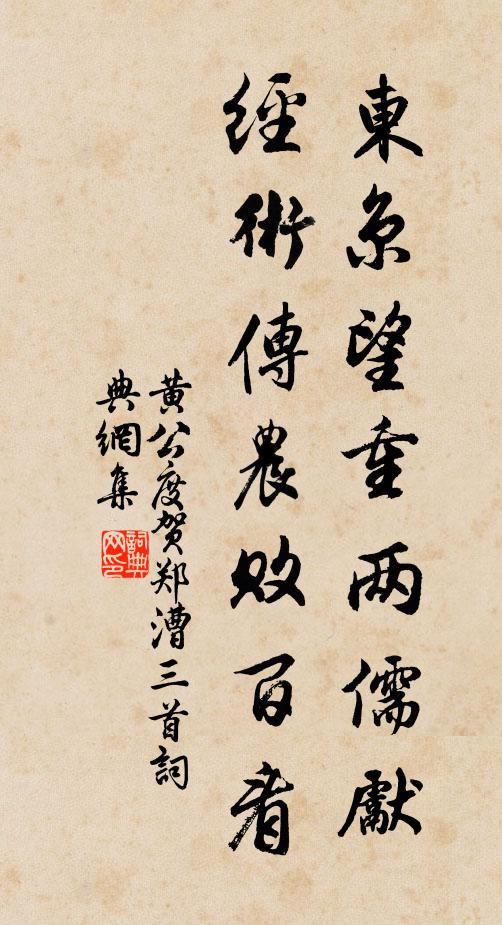 東京望重两儒獻
經術傳農敗百
黄公度贺郑漕三首詞
典網集
詞典
网印